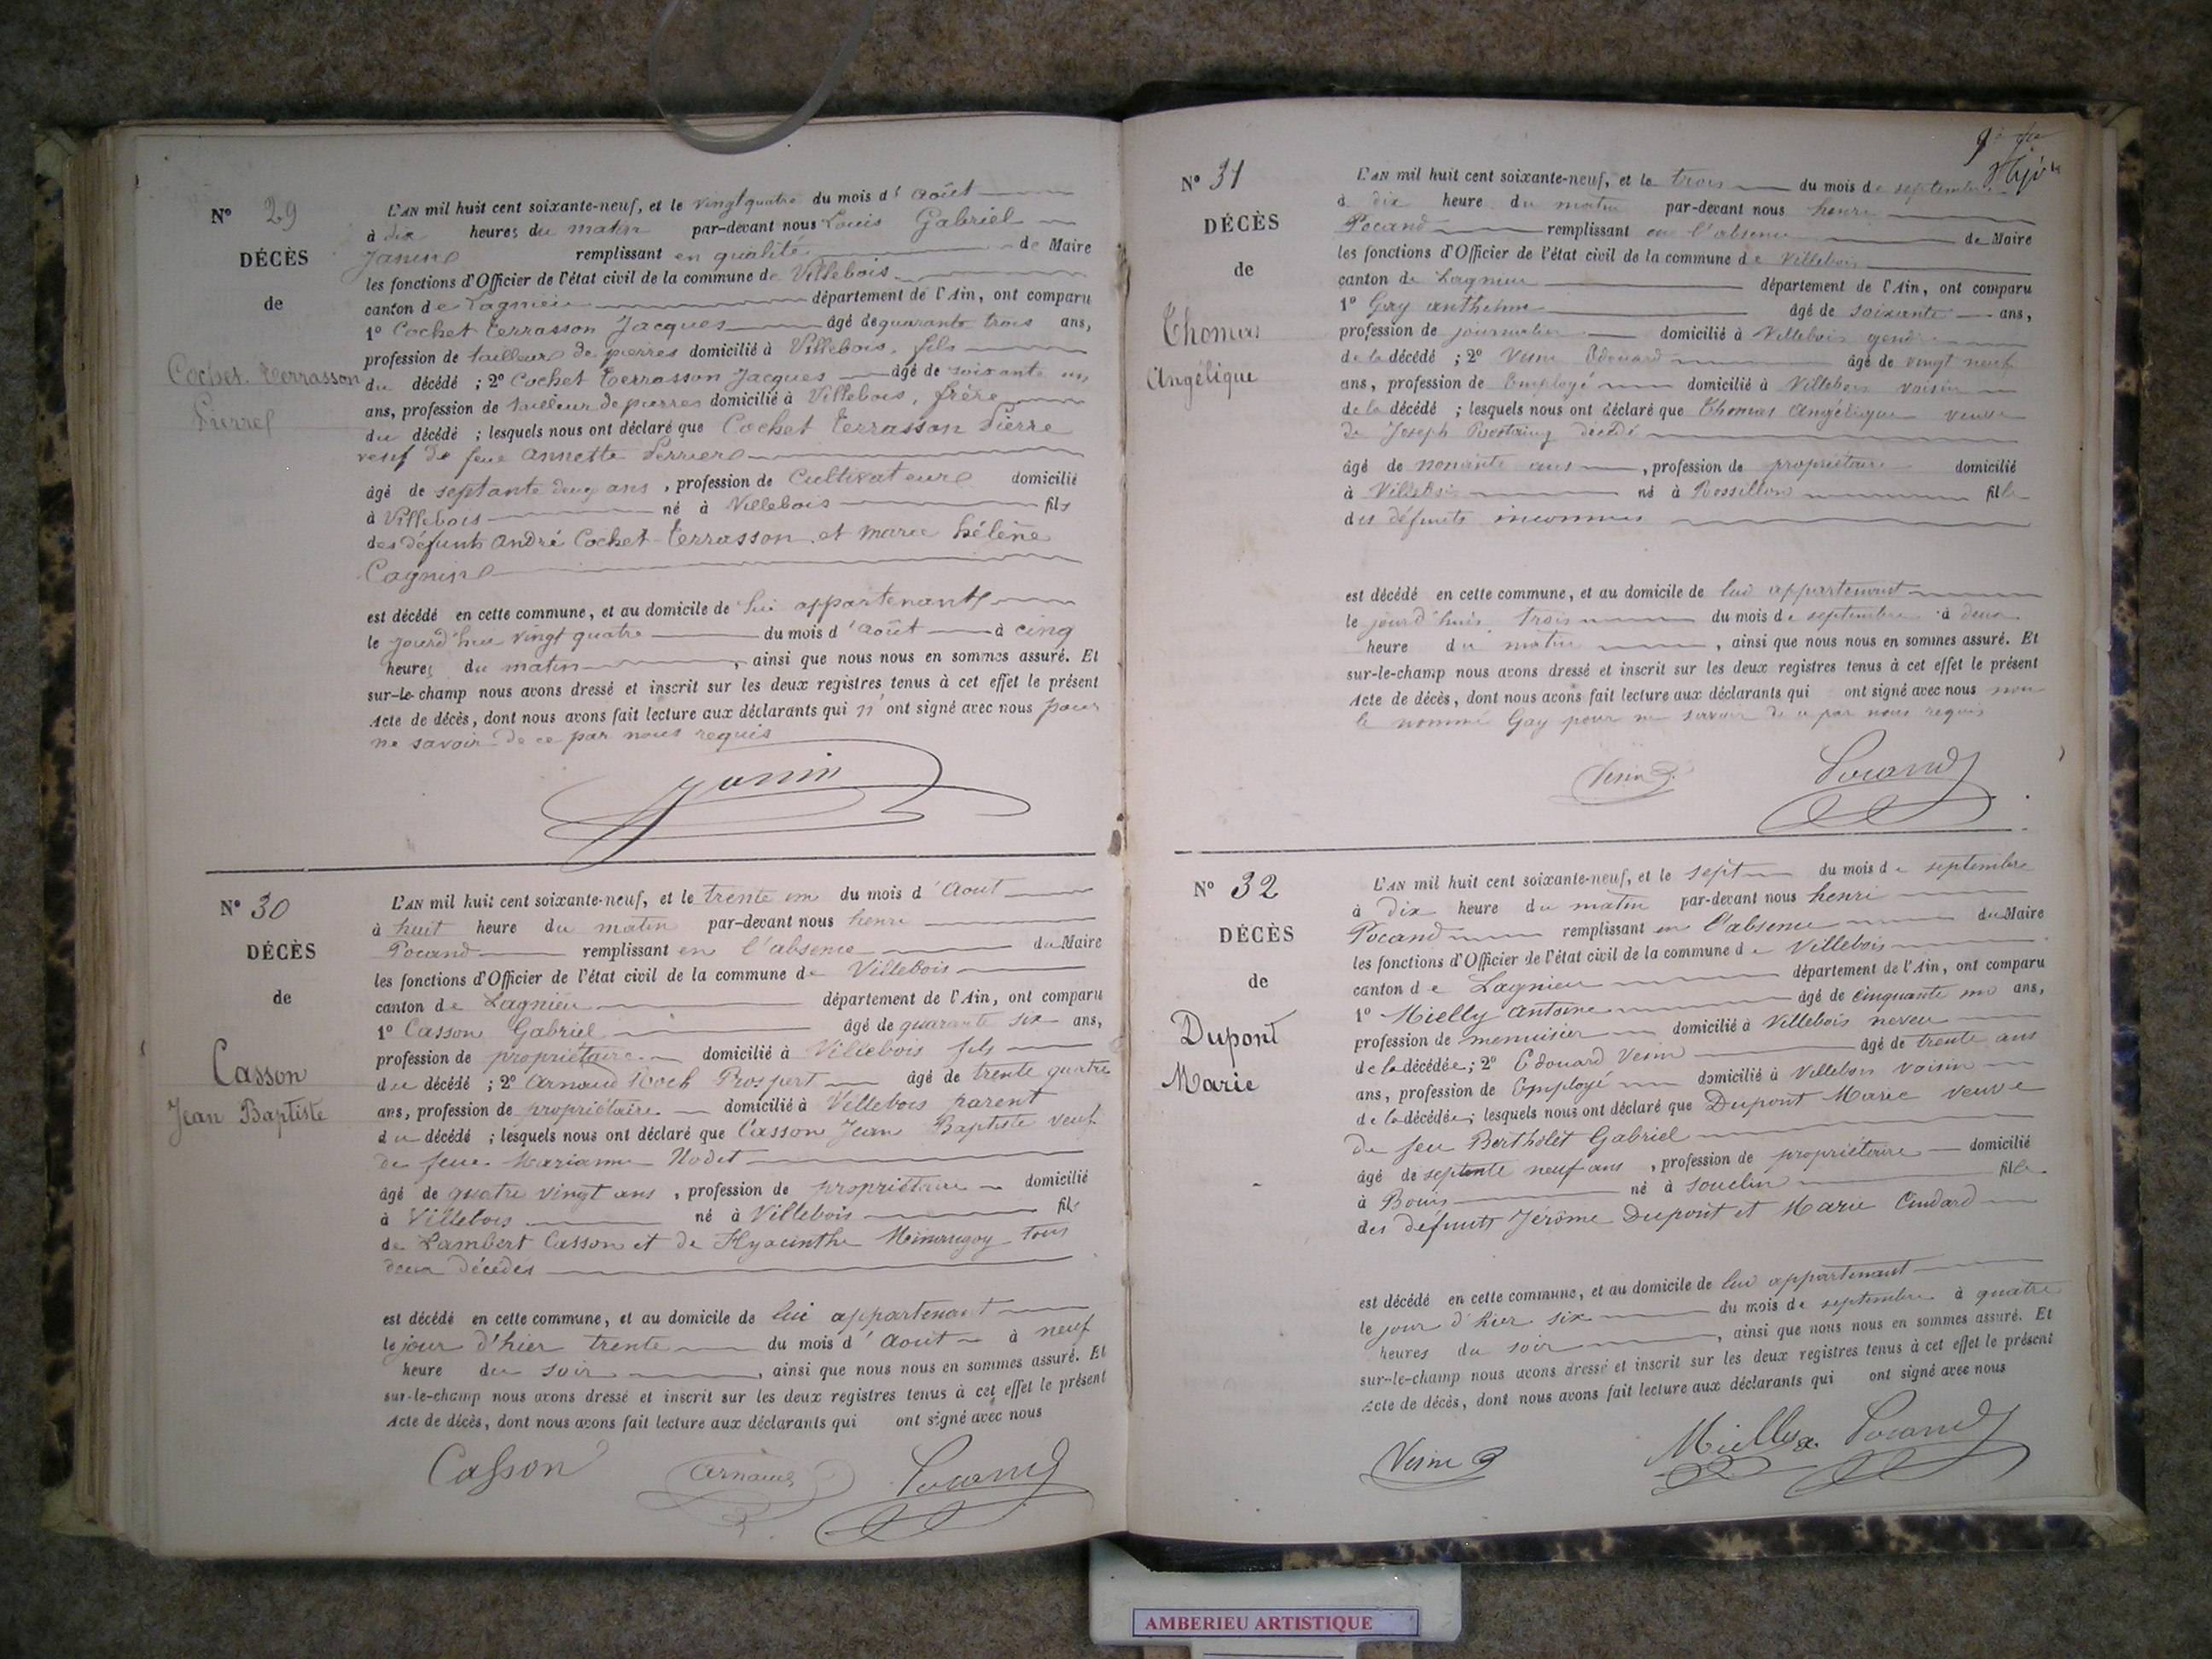 N° 29
DÉCÈS
de
Cochet-Terrasson
Pierre
L'AN mil huit cent soixante-neuf, et le vingt quatre du mois d'Août
à dix heures du matin par-devant nous Louis Gabriel
Janin remplissant en qualité de Maire
les fonctions d'Officier de l'état civil de la commune de Villebois
canton de Lagnieu département de l'Ain, ont comparu
1° Cochet Terrasson Jacques âgé de quarante trois ans,
profession de tailleur de pierres domicilié à Villebois, fils
du décédé ; 2° Cochet Terrasson Jacques âgé de soixante un
ans, profession de tailleur de pierres domicilié à Villebois, frère
du décédé ; lesquels nous ont déclaré que Cochet Terrasson Pierre
veuf de feue Annette Perrier
âgé de septante deux ans, profession de Cultivateur domicilié
à Villebois né à Villebois fils
des défunts André Cochet-Terrasson et Marie hélène
Cagnin
est décédé en cette commune, et au domicile de lui appartenant
le jourd'hui vingt quatre du mois d'Août à cinq
heures du matin, ainsi que nous nous en sommes assuré. Et
sur-le-champ nous avons dressé et inscrit sur les deux registres tenus à cet effet le présent
Acte de décès, dont nous avons fait lecture aux déclarants qui n'ont signé avec nous pour
ne savoir de ce par nous requis
Janin
N° 30
DÉCÈS
de
Casson
Jean Baptiste
L'AN mil huit cent soixante-neuf, et le trente un du mois d'Aout
à huit heure du matin par-devant nous henri
Pocand remplissant en l'absence du Maire
les fonctions d'Officier de l'état civil de la commune de Villebois
canton de Lagnieu département de l'Ain, ont comparu
1° Casson Gabriel âgé de quarante six ans,
profession de propriétaire domicilié à Villebois fils
du décédé ; 2° Arnaud Roch Prospert âgé de trente quatre
ans, profession de propriétaire domicilié à Villebois parent
du décédé ; lesquels nous ont déclaré que Casson Jean Baptiste veuf
de feue Marianne Nodet
âgé de quatre vingt ans, profession de propriétaire domicilié
à Villebois né à Villebois fils
de Lambert Casson et de Hyacinthe tous
deux décédés
est décédé en cette commune, et au domicile de lui appartenant
le jour d'hier trente du mois d'Aout à neuf
heure du soir, ainsi que nous nous en sommes assuré. Et
sur-le-champ nous avons dressé et inscrit sur les deux registres tenus à cet effet le présent
Acte de décès, dont nous avons fait lecture aux déclarants qui ont signé avec nous
Casson Arnaud Pocand
N° 31
DÉCÈS
de
Thomas
Angélique
L'AN mil huit cent soixante-neuf, et le trois du mois de septembre
à dix heure du matin par-devant nous henri
Pocand remplissant en l'absence de Maire
les fonctions d'Officier de l'état civil de la commune de Villebois
canton de Lagnieu département de l'Ain, ont comparu
1° Gay anthelme âgé de soixante ans,
profession de journalier domicilié à Villebois gendre
de la décédé ; 2° Vesin Edouard âgé de vingt neuf
ans, profession de Employé domicilié à Villebois voisin
de la décédé ; lesquels nous ont déclaré que Thomas Angélique veuve
de Joseph décédé
âgé de nonante ans, profession de propriétaire domicilié
à Villebois né à Rossillon fille
des défunts inconnus
est décédé en cette commune, et au domicile de lui appartenant
le jourd'huis trois du mois de septembre à deux
heure du matin, ainsi que nous nous en sommes assuré. Et
sur-le-champ nous avons dressé et inscrit sur les deux registres tenus à cet effet le présent
Acte de décès, dont nous avons fait lecture aux déclarants qui ont signé avec nous non
le nommé Gay pour ne savoir de ce par nous requis
Vesin Pocand
N° 32
DÉCÈS
de
Dupont
Marie
L'AN mil huit cent soixante-neuf, et le sept du mois de septembre
à dix heure du matin par-devant nous henri
Pocand remplissant en l'absence du Maire
les fonctions d'Officier de l'état civil de la commune de Villebois
canton de Lagnieu département de l'Ain, ont comparu
1° Mielly Antoine âgé de cinquante un ans,
profession de menuisier domicilié à Villebois neveu
de la décédée ; 2° Edouard Vesin âgé de trente ans
ans, profession de Employé domicilié à Villebois voisin
de la décédée ; lesquels nous ont déclaré que Dupont Marie veuve
de feu Bertholet Gabriel
âgé de septente neuf ans, profession de propriétaire domicilié
à Bouis né à Souclin fille
des défunts Jérôme Dupont et Marie Cindard
est décédé en cette commune, et au domicile de lui appartenant
le jour d'hier six du mois de septembre à quatre
heures du soir, ainsi que nous nous en sommes assuré. Et
sur-le-champ nous avons dressé et inscrit sur les deux registres tenus à cet effet le présent
Acte de décès, dont nous avons fait lecture aux déclarants qui ont signé avec nous
Vesin Mielly a. Pocand
AMBERIEU ARTISTIQUE